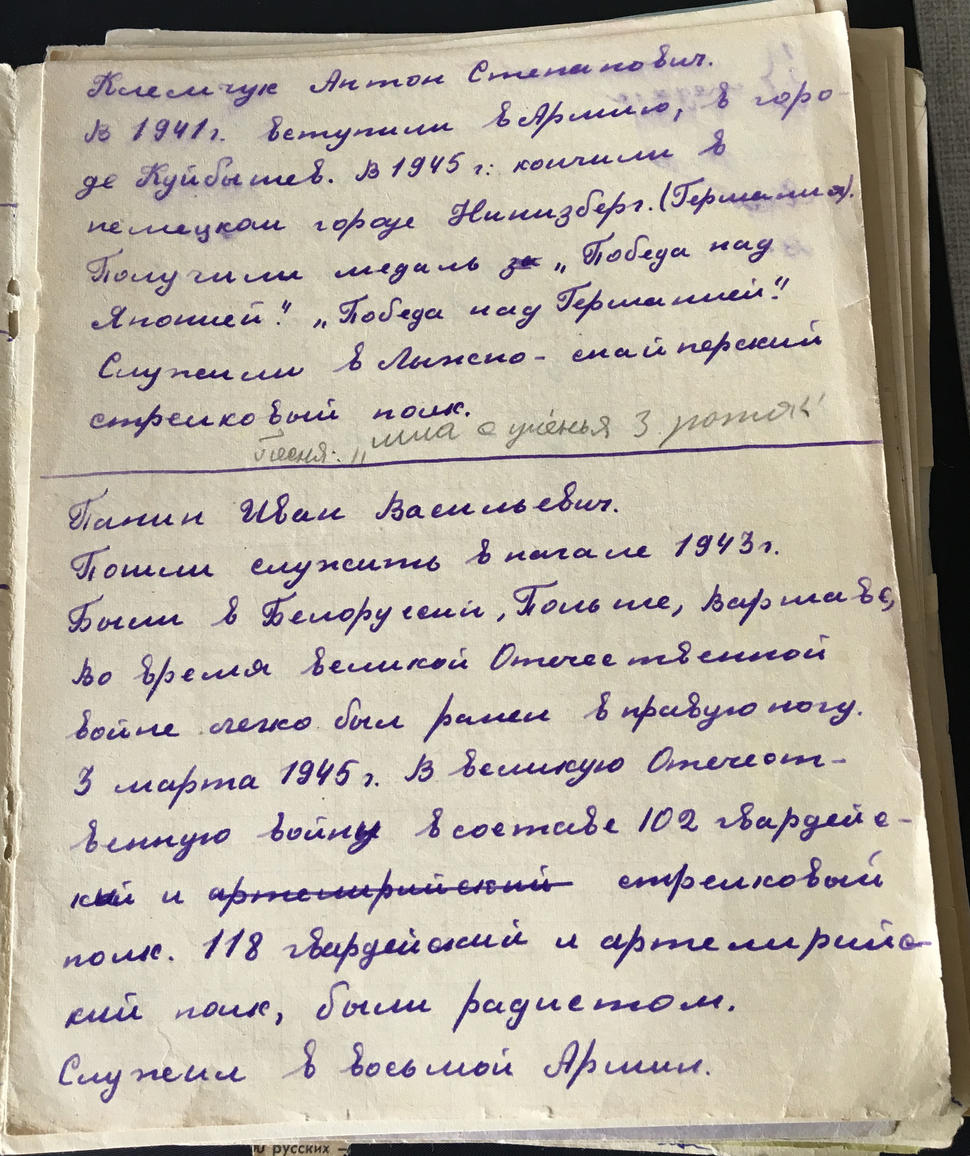 Клемчук Антон Степанович.
В 1941г. вступили в Армию, в горо-
де Куйбышев. В 1945 г. кончили в
немецком городе Нинизберг. (Германия).
Получили медаль за „Победа над
Японией". „Победа над Германией".
Служили в Лыжно-снайперский
стрелковый полк.
Песня: „Шла с ученья 3 рота"
Панин Иван Васильевич.
Пошли служить в начале 1943г.
Были в Белоруссий, Польше, Варшаве,
Во время великой Отечественной
войне легко был ранен в правую ногу.
3 марта 1945 г. В великую Отечест-
венную войну в составе 102 гвардейс-
кий и артелирийский стрелковый
полк. 118 гвардейский и артелирийс-
кий полк, были радистом.
Служил в восьмой Армии.
русских –